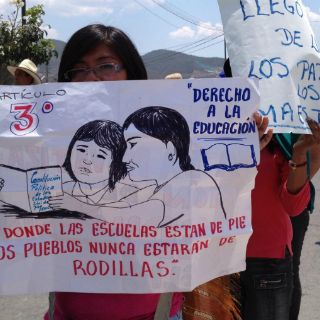 ARTÍCULO
3º
"DERECHO
A LA
EDUCACIÓN
Constitución
Política
de los
Estados
DONDE LAS ESCUELAS ESTAN DE PIE
OS PUEBLOS NUNCA ESTARÁN DE
RODILLAS."
LLEGO
DE L
LOS PA
LOS
MAEST